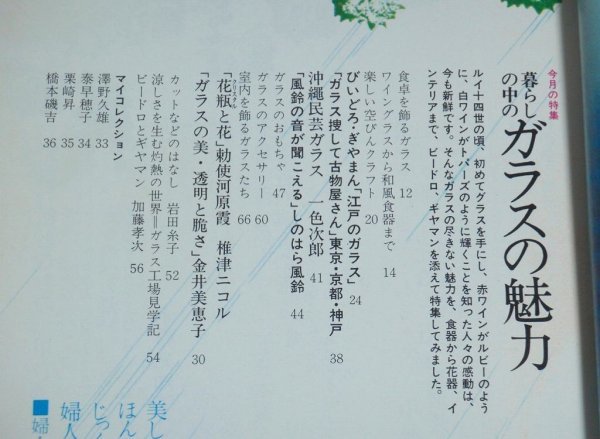 今月の特集
暮らしの中の
ガラスの魅力
ルイ十四世の頃、初めてグラスを手にし、赤ワインがルビーのよう
に、白ワインがトパーズのように輝くことを知った人々の感動は、
今も新鮮です。そんなガラスの尽きない魅力を、食器から花器、イ
ンテリアまで、ビードロ、ギヤマンを添えて特集してみました。
食卓を飾るガラス 12
ワイングラスから和風食器まで 14
楽しい空びんクラフト 20
びいどろ・ぎやまん「江戸のガラス」 24
「ガラス捜して古物屋さん」東京・京都・神戸 38
沖縄民芸ガラス 一色次郎 41
「風鈴の音が聞こえる」しのはら風鈴 44
ガラスのおもちゃ 47
ガラスのアクセサリー 60
室内を飾るガラスたち 66
「花瓶と花」勅使河原霞 椎津ニコル
「ガラスの美・透明と脆さ」金井美恵子 30
カットなどのはなし 岩田糸子 52
涼しさを生む灼熱の世界=ガラス工場見学記 54
ビードロとギヤマン 加藤孝次 56
マイコレクション
澤野久雄 33
泰早穂子 34
栗崎昇 35
橋本磯吉 36
美し
ほん
じっ
婦人
■婦